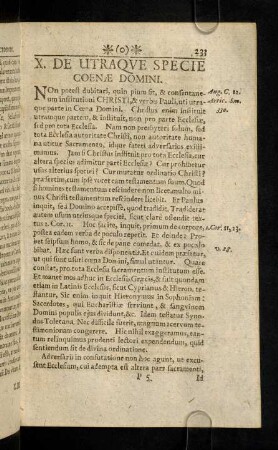 (o)
233
X. DE UTRAQVE SPECIE
COENÆ DOMINI.
NOn potest dubitari, quin pium sit, & consentane-
um institutioni CHRISTI, & verbis Pauli, uti utra-
que parte in Cœna Domini. Christus enim instituit
utramque partem, & instituit, non pro parte Ecclesiæ,
sed pro tota Ecclesia. Nam non presbyteri solum, sed
tota Ecclesia autoritate Christi, non autoritate huma-
na utitur Sacramento, idque fateri adversarios existi-
mamus. Jam si Christus instituit pro tota Ecclesia, cur
altera species adimitur parti Ecclesiæ? Cur prohibetur
usus alterius speciei? Cur mutatur ordinatio Christi?
præsertim, cum ipse vocet eam testamentum suum. Quod
si hominis testamentum rescindere non licet, multo mi-
nus Christi testamentum rescindere licebit. Et Paulus
inquit, se à Domino accepisse, quod tradidit. Tradiderat
autem usum utriusque speciei, sicut clare ostendit textus
1. Cor. 11. Hoc facite, inquit, primum de corpore,
postea eadem verba de poculo repetit. Et deinde: Probet
seipsum homo, & sic de pane comedat, & ex poculo
bibat. Hæc sunt verba disponentis. Et quidem præfatur,
ut qui sint usuri cœna Domini, simul utantur. Quare
constat, pro tota Ecclesia sacramentum institutum esse.
Et manet mos adhuc in Ecclesiis Græcis, & fuit quondam
etiam in Latinis Ecclesiis, sicut Cyprianus & Hieron. te-
stantur. Sic enim inquit Hieronymus in Sophoniam:
Sacerdotes, qui Eucharistiæ serviunt, & sangvinem
Domini populis ejus dividunt, &c. Idem testatur Syno-
dus Toletana. Nec difficile fuerit, magnum acervum te-
stimoniorum congerere. Hic nihil exaggeramus, tan-
tum relinquimus prudenti lectori expendendum, quid
sentiendum sit de divina ordinatione.
Adversarii in confutatione non hoc agunt, ut excu-
sent Ecclesiam, cui ademta est altera pars sacramenti.
P 5
Id
Aug. C. 22.
1. Cor. 11, 23.
v. 28.